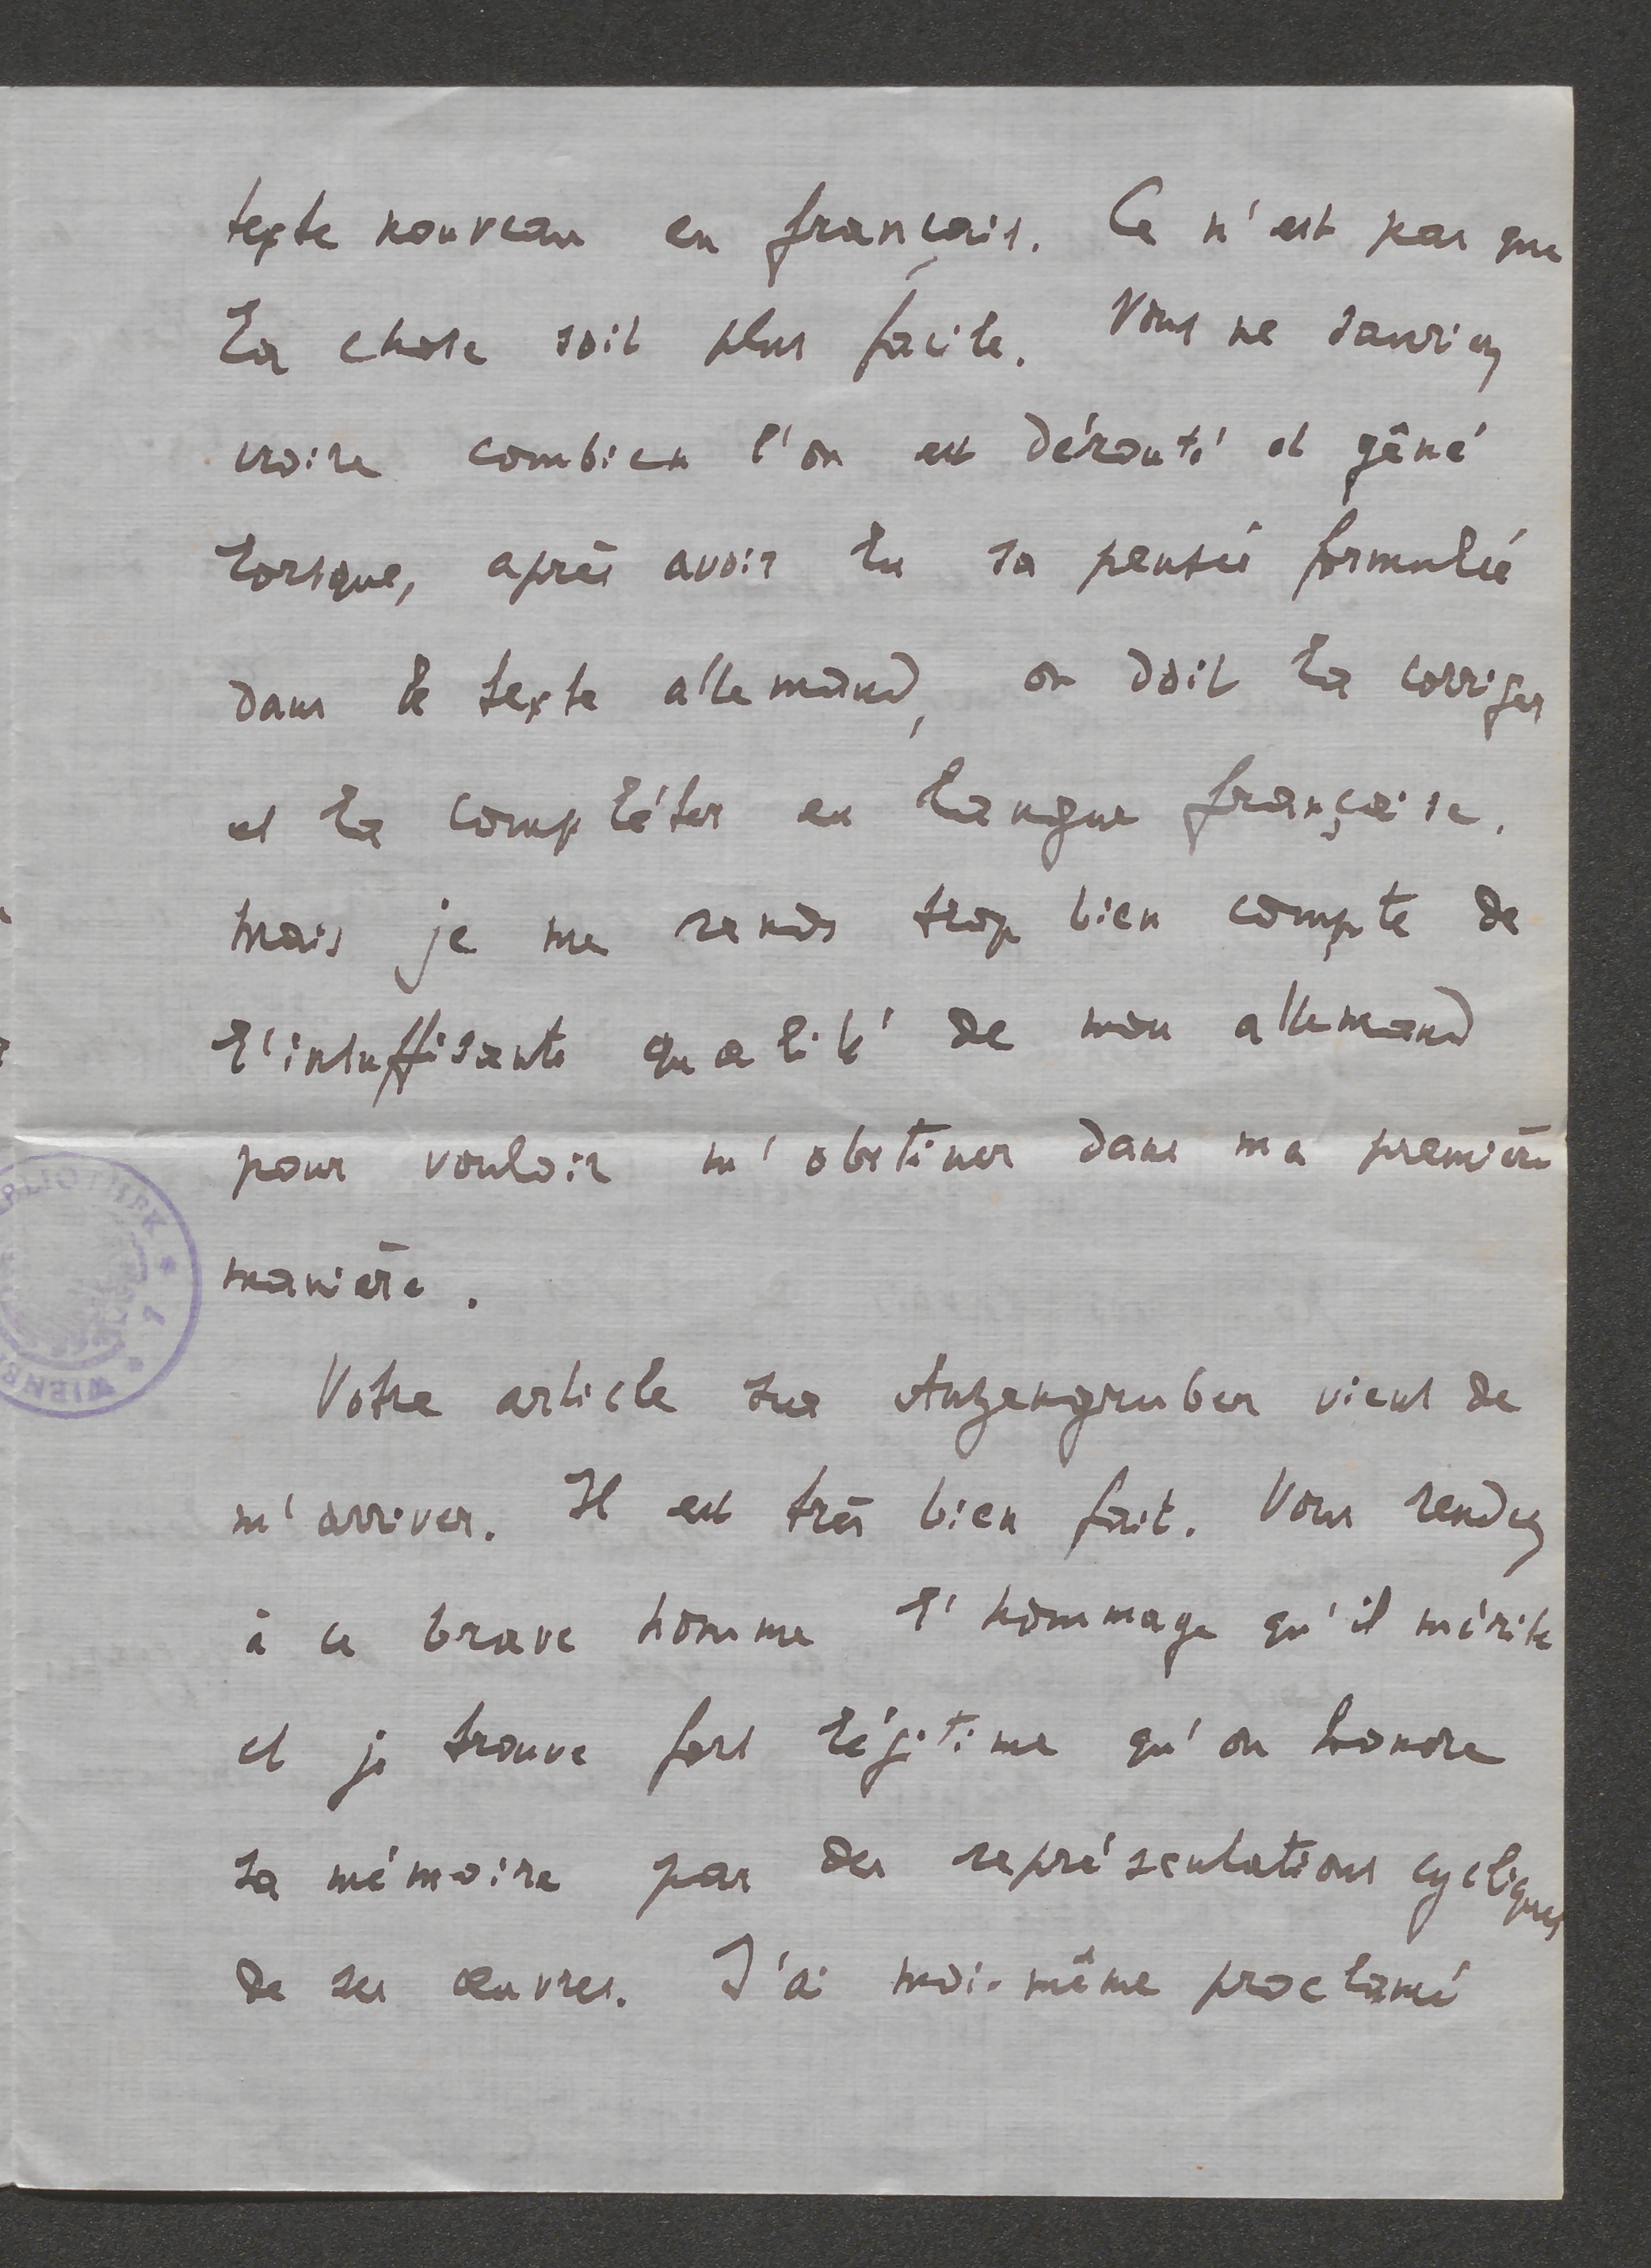 texte nouveau en français. Ce n'est pas que
la chose soit plus facile. Vous ne sauriez
croire combien l'on est dérouté et gêné
lorsque, après avoir lu sa pensée formulée
dans le texte allemand, on doit la corriger
et la compléter en langue française.
Mais je me rends trop bien compte de
l'insuffisante qualité de mon allemand
pour vouloir m'obstiner dans ma première
manière.
Votre article sur Anzengruber vient de
m'arriver. Il est très bien fait. Vous rendez
à ce brave homme l'hommage qu'il mérite
et je trouve fort légitime qu'on honore
sa mémoire par des représentations cycliques
de ses œuvres. J'ai moi-même proclamé